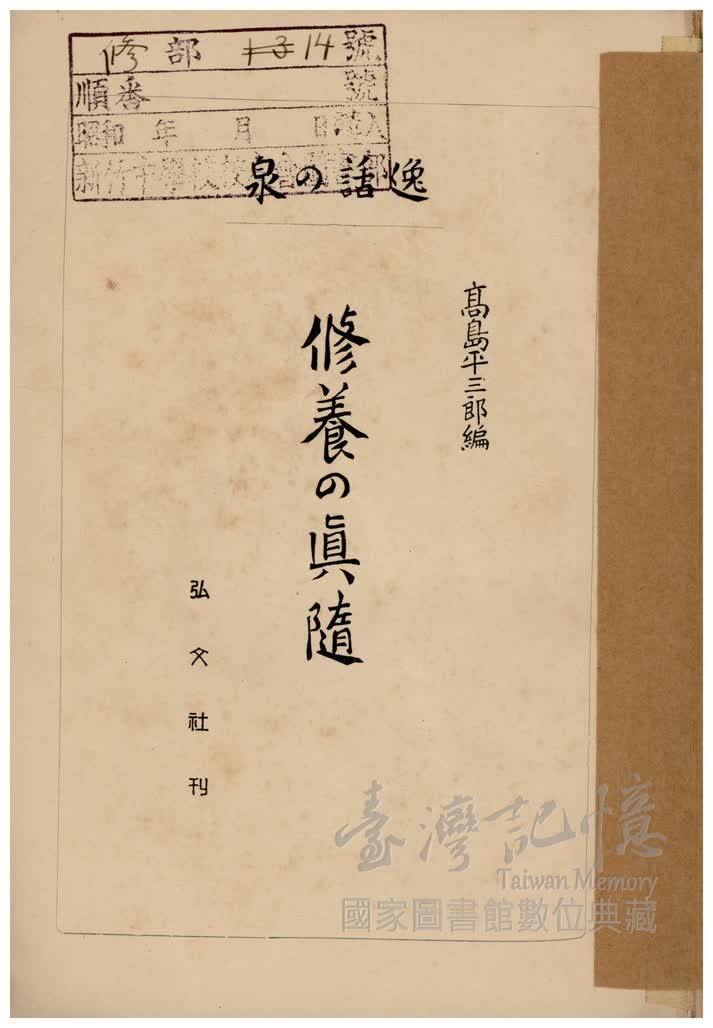 修部 14號
順番 號
昭和 年 月 日
逸話の泉
高島平三郎編
修養の眞隨
弘文社刊
臺灣記憶
Taiwan Memory
國家圖書館數位典藏